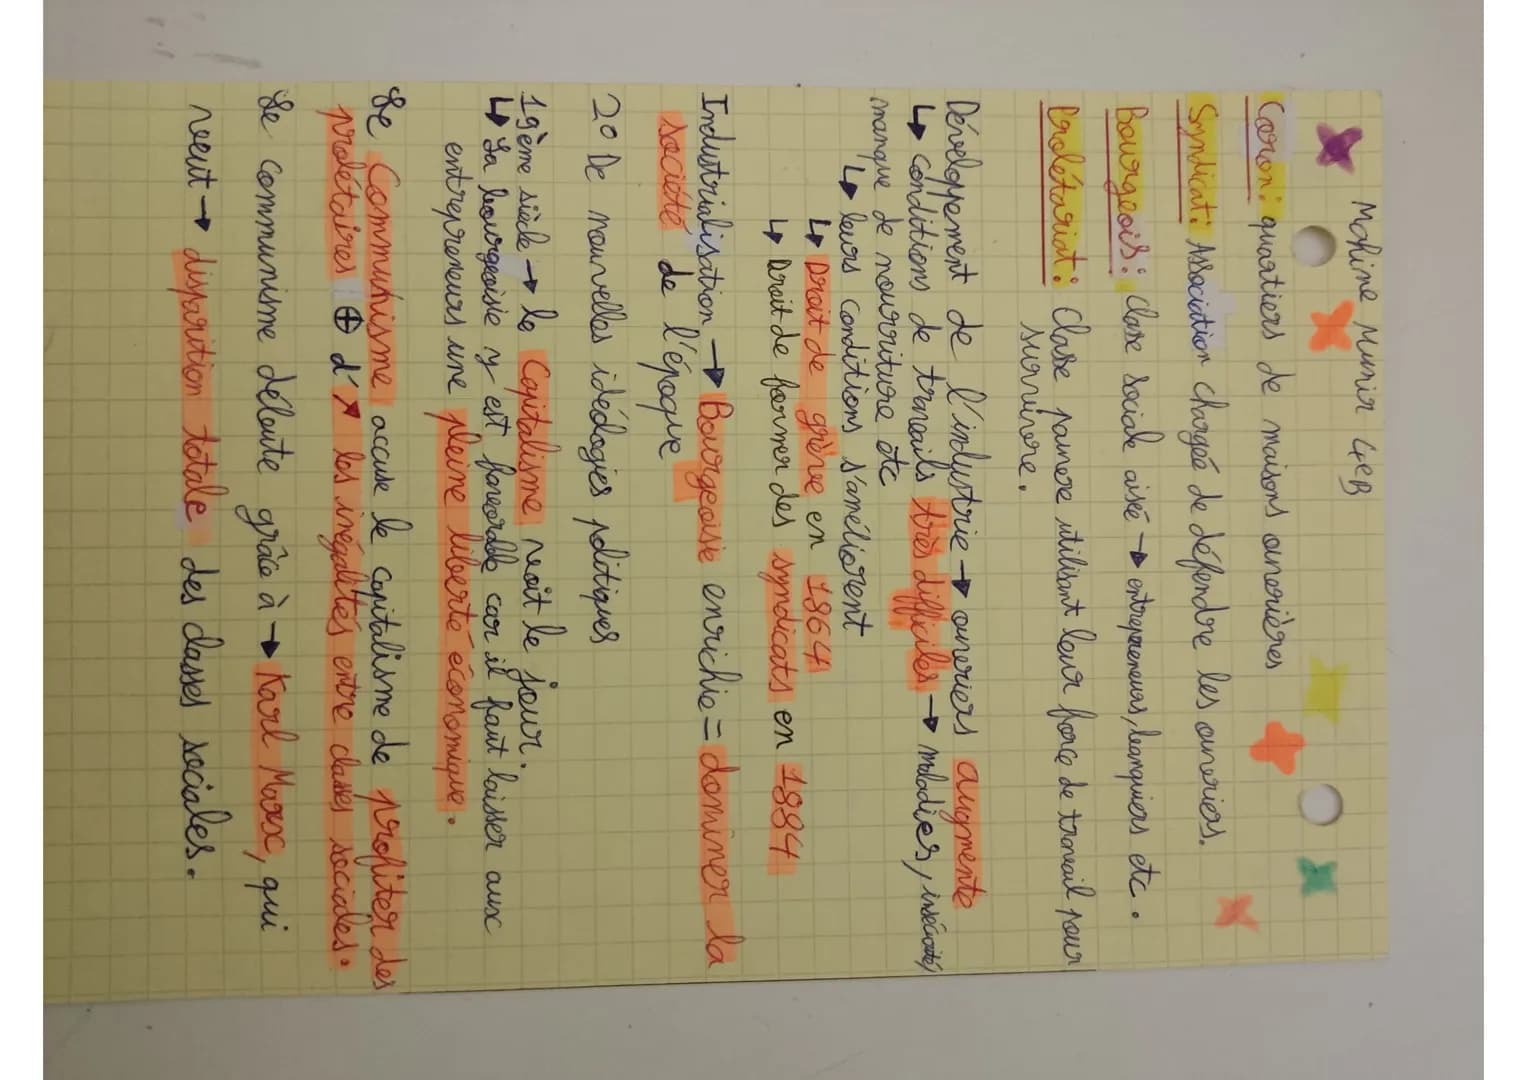 Mofline Munir 4eB
Coron: quartiers de maisons ouvrières
Syndicat: Association chargée de défendre les ouvriers.
Bourgeois: classe sociale aisé → entrepreneurs, banquiers etc.
Prolétariat: Classe pauvre utilisant leur force de travail pour
survivre.
Développement de l'industrie → ouvriers augmente
↳ conditions de travails très difficiles → maladies, insécurité,
manque de nourriture etc
↳ leurs conditions s'améliorent
↳ Droit de grève en 1864
↳ Droit de former des syndicats en 1884
Industrialisation → Bourgeoisie enrichie = dominer la
société de l'époque
2° De nouvelles idéologies politiques
19ème siècle → le Capitalisme voit le jour.
↳ La bourgeoisie y est favorable car il faut laisser aux
entrepreneurs une pleine liberté économique.
Le Communisme accuse le capitalisme de profiter des
prolétaires ⊕ d'↗ les inégalités entre classes sociales.
Le communisme débute grâce à → Karl Marx, qui
veut → disparition totale des classes sociales.